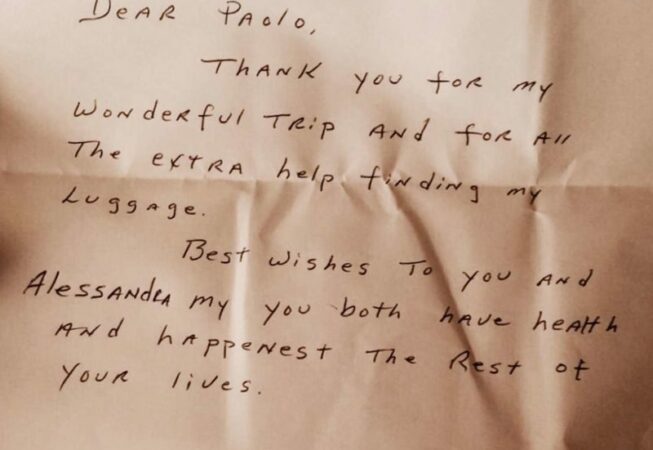 Dear Paolo,
Thank you for my
wonderful Trip and for all
The extra help finding my
Luggage.
Best wishes To you and
Alessandra my you both have health
and happenest The Rest of
your lives.